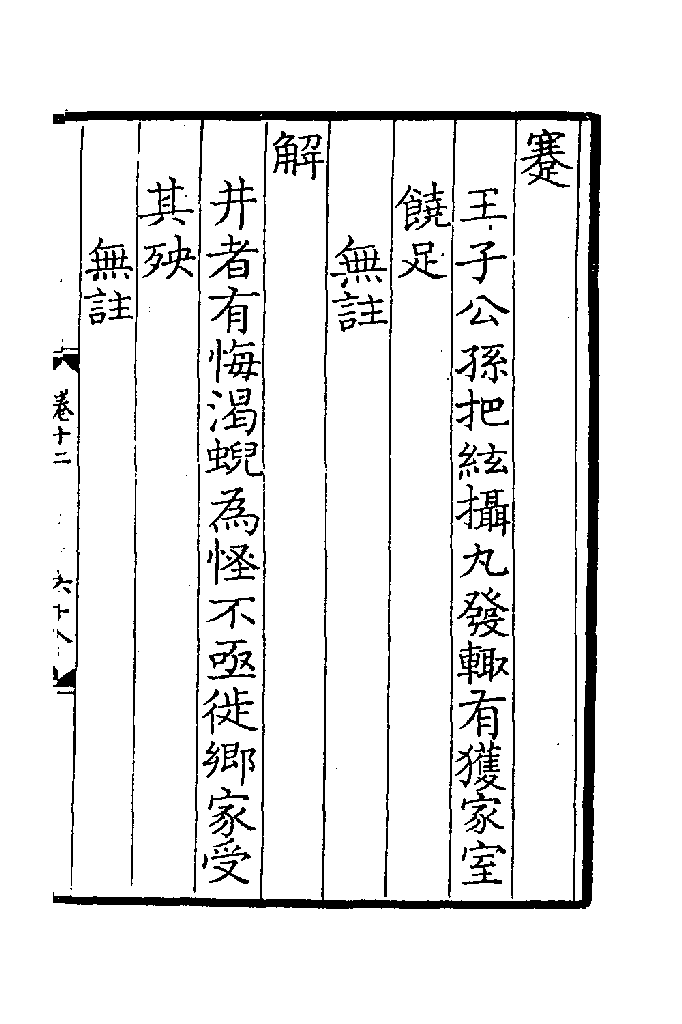 蹇
王子公孫把絃攝丸發輙有獲家室
饒足
無註
解
井者有悔渴蜺為怪不亟徙鄉家受
其殃
無註
卷十二
六十八